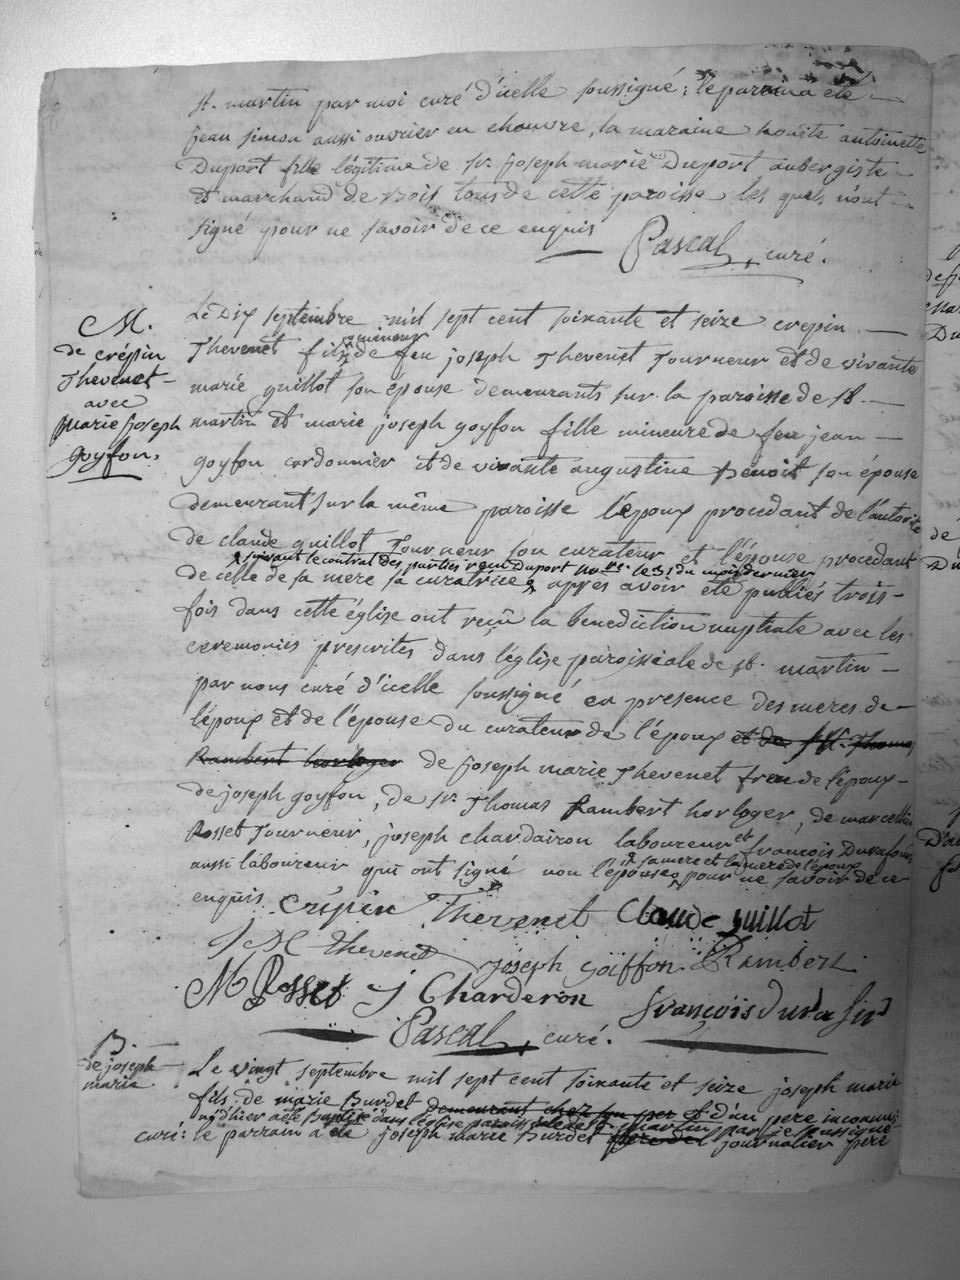 St. martin par moi curé d'icelle soussigné: le parrain a été
jean simon aussi ouvrier en chanvre, la maraine antoinette
Duport fille légitime de sr. joseph marie Duport aubergiste
et marchand de Bois tous de cette paroisse les quels n'ont
signé pour ne savoir de ce enquis
Pascal, curé.
M.
de crépin
Thevenet
avec
marie joseph
goyfon.
Le Dix septembre mil sept cent soixante et seize crepin
Thevenet fils mineur de feu joseph Thevenet Tourneur et de vivante
marie guillot son epouse demeurants sur la paroisse de st.
martin et marie joseph goyfon fille mineure de feu jean
goyfon cordonnier et de vivante augustine Benoit son épouse
demeurant sur la même paroisse l'époux procedant de l'autorité
de claude guillot Tourneur son curateur et l'épouse procedant
suivant le contrat des parties reçu Duport nore. le 31 du mois dernier
de celle de sa mere sa curatrice, apres avoir été publiés trois
fois dans cette église ont reçu la benediction nuptiale avec les
ceremonies prescrites dans l'église paroissiale de st. martin
par nous curé d'icelle soussigné en presence des meres de
l'époux et de l'épouse du curateur de l'époux et de sr. Thomas
Rambert horloger de joseph marie Thevenet frere de l'époux
de joseph goyfon, de sr. Thomas Rambert horloger, de marcellin
Rosset Tourneur, joseph chardairon laboureur et francois Durafour
aussi laboureur qui ont signé non l'épouse ni sa mere et la mere de l'époux pour ne savoir de ce
enquis crépin Thevenet Claude guillot
J M thevenet joseph goiffon Rambert
M Rosset J Charderon françois durafur
Pascal, curé.
B.
de joseph
marie.
Le vingt septembre mil sept cent soixante et seize joseph marie
fils de marie Burdet demeurant chez son pere et d'un pere inconnu
né d'hier a été Baptisé dans l'église paroissiale de st. martin par je soussigné
curé: le parrain a été joseph marie Burdet journalier pere